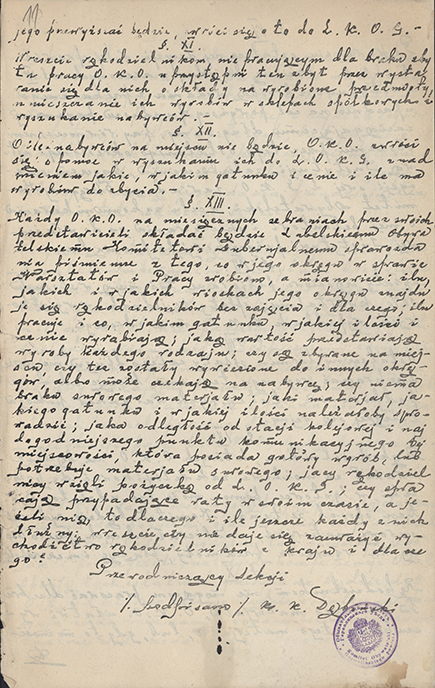 11
jego przewyższać będzie, wróci się o to do L. K. O. G. -
§. XI
Wreszcie rękodzielnikom, nie pracującym dla braku zby
tu pracy O. K. O. uprzystępni ten zbyt przez wysta-
ranie się dla nich o składy na wyrobione przedmioty,
umieszczanie ich wyrobów w sklepach spółkowych i
wyszukanie nabywców. -
§. XII.
O ile nabywców na miejscu nie będzie, O. K. O. zwróci
się o pomoc w wyszukaniu ich do L. O. K. G. z nad
mieniem jakie, w jakim gatunku i cenie i ile ma
wyrobów do zbycia. -
§. XIII.
Każdy O. K. O. na miesięcznych zebraniach przez swoich
przedstawicieli składać będzie Lubelskiemu Obywa
telskiemu Komitetowi Gubernjalnemu sprawozda
nia piśmienne z tego, co w jego okręgu w sprawie
Warsztatów i Pracy zrobiono, a mianowicie: ilu,
jakich i w jakich wioskach jego okręgu znajdu
je się rękodzielników bez zajęcia i dla czego; ilu
pracuje i co, w jakim gatunku, w jakiej ilości i
cenie wyrabiają; jaką wartość przedstawiają
wyroby każdego rodzaju; czy są zbywane na miej-
scu, czy też zostały wywiezione do innych okrę-
gów, albo może czekają na nabywcę; czy niema
braku surowego materjału; jaki materjał, ja-
kiego gatunku i w jakiej ilości należałoby spro-
wadzić; jaka odległość od stacji kolejowej i naj
dogodniejszego punktu komunikacyjnego tej
miejscowości, która posiada gotowy wyrób, lub
potrzebuje materjału surowego; jacy rękodziel
nicy wzięli pożyczkę od L. O. K. G.; czy spła
cają przypadające raty w swoim czasie, a je-
śli nie, to dlaczego i ile jeszcze każdy z nich
dłużny, wreszcie czy nie daje się zauważyć wy-
chodźtwo rękodzielników z kraju i dlacze
go?
Przewodniczący Sekcji
/. Podpisano /. K. K.